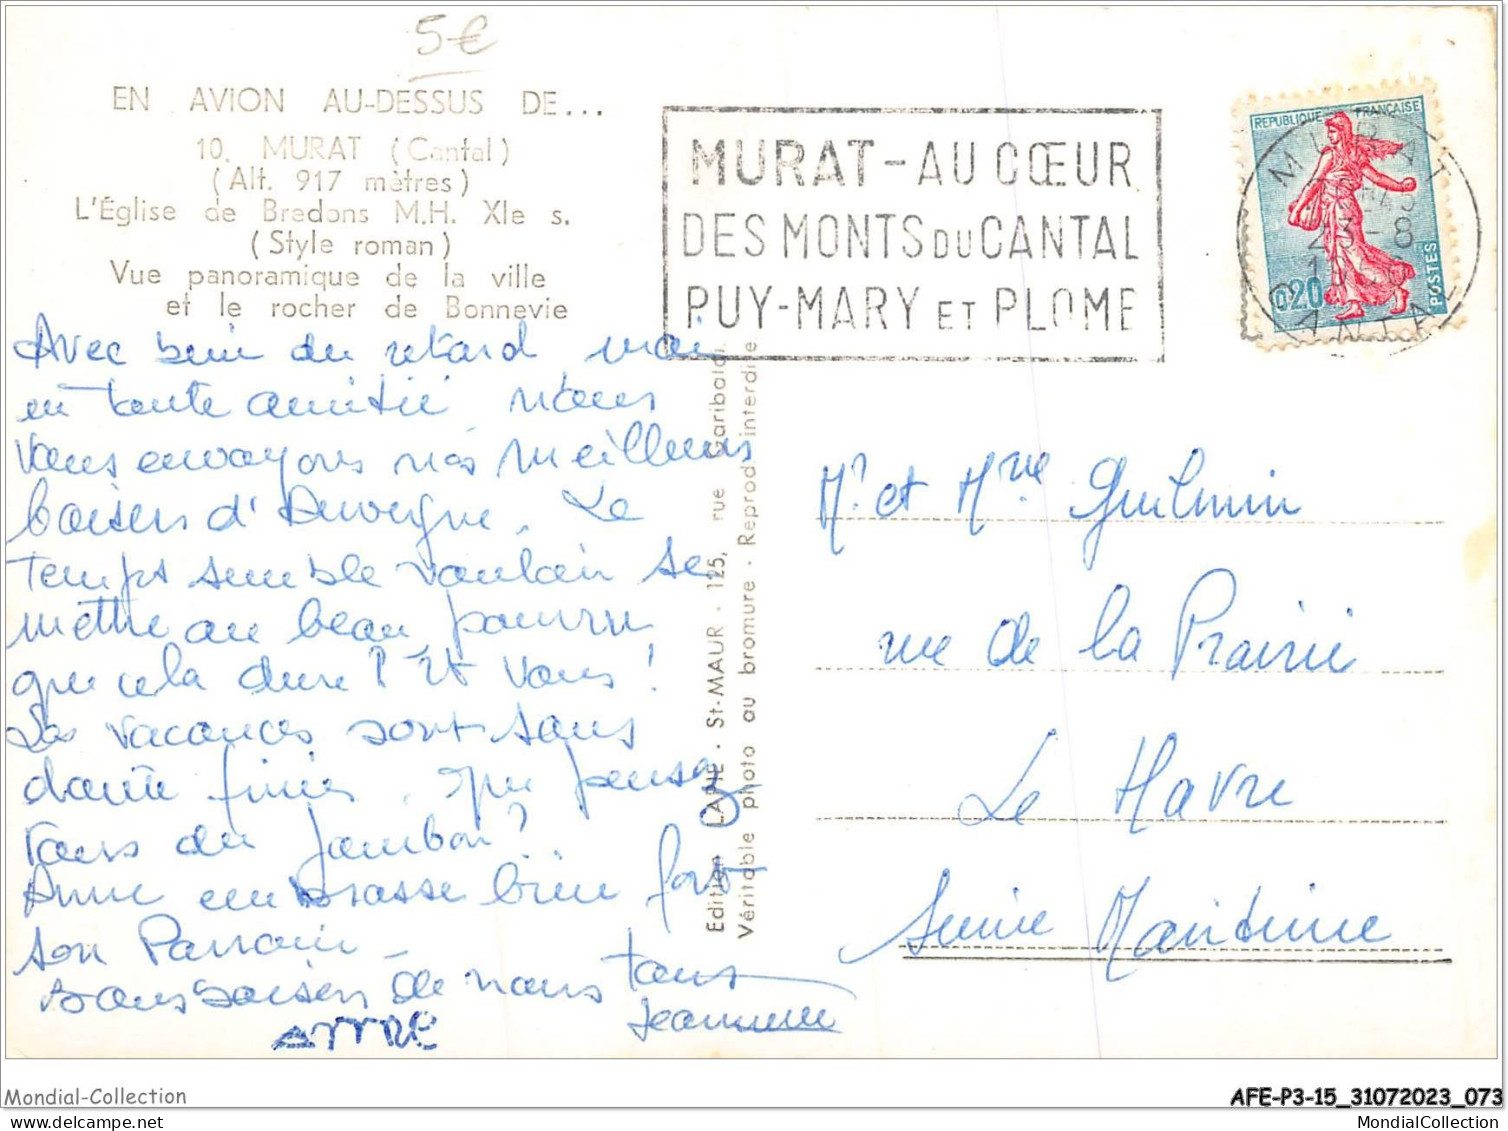 5€
EN AVION AU-DESSUS DE...
10. MURAT (Cantal)
(Alt. 917 mètres)
L'Église de Bredons M.H. XIe s.
(Style roman)
Vue panoramique de la ville
et le rocher de Bonnevie
Avec bien du retard mais
en toute amitié nous
vous envoyons nos meilleurs
baisers d'Auvergne. Le
temps semble vouloir se
mettre au beau, pourvu
que cela dure ! Et vous !
Les vacances sont sans
doute finies. Que pensez
vous du jambon ?
Anne embrasse bien fort
son Parrain -
Bons baisers de nous tous
Jeannine
ANNE
Edition LAPIE · St-MAUR · 125, rue Garibaldi
Véritable photo au bromure · Reprod. interdite
MURAT-AU CŒUR
DES MONTS DU CANTAL
PUY-MARY ET PLOMB
REPUBLIQUE FRANÇAISE
0,20
POSTES
MURAT
23-8
CANTAL
Mr et Mme Guilmin
rue de la Prairie
Le Havre
Seine Maritime
Mondial-Collection
AFE-P3-15_31072023_073
MondialCollection.com